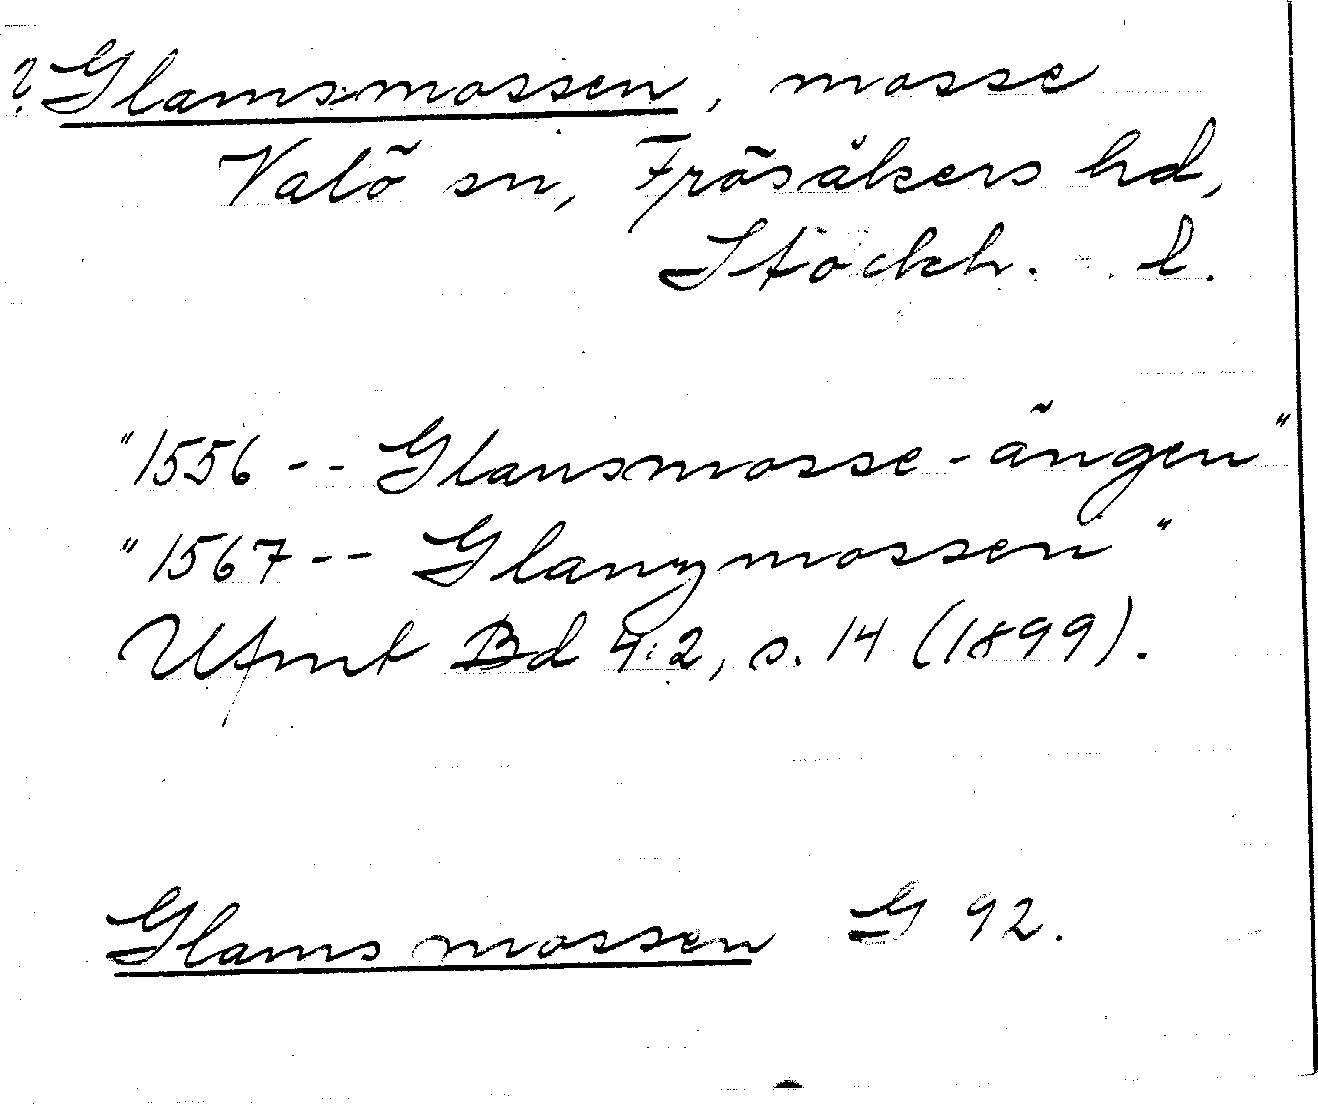 ? Glamsmossen, mosse
Valö sn, Frösåkers hd,
Stockh. l.
"1556 -- Glansmosse-ängen"
"1567 -- Glanzmossen"
Ufmt Bd 4:2, s. 14 (1899).
Glamsmossen G 92.